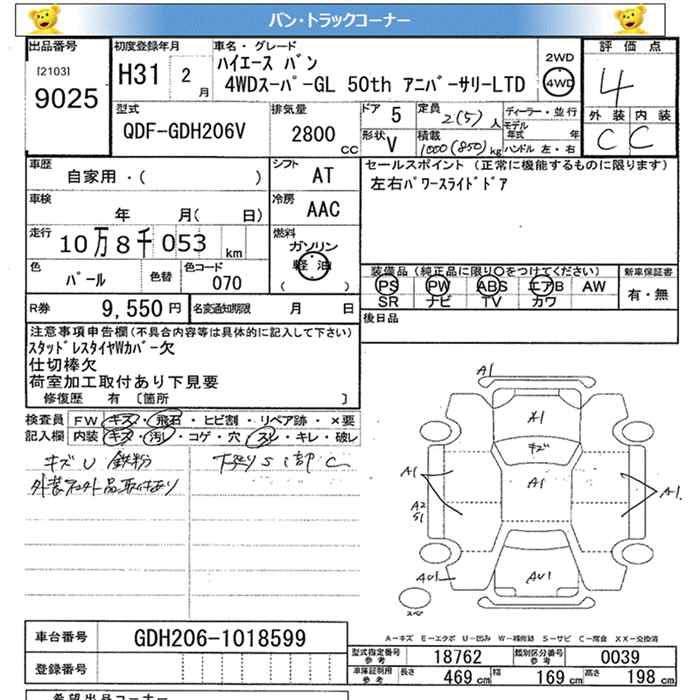 バン・トラックコーナー
出品番号 初度登録年月 車名・グレード 評価点
[2103] 9025
H31 2月
ハイエース バン
4WDスーパーGL 50th アニバーサリーLTD
2WD 4WD
4
外装 内装
C C
型式 排気量 ドア 5 定員 2(5)人 ディーラー・並行
QDF-GDH206V 2800CC 形状 V 積載 1000(850)kg
モデル年式 年
ハンドル 左・右
車歴 自家用・( )
シフト AT
セールスポイント (正常に機能するものに限ります)
左右パワースライドドア
車検 年 月( 日)
冷房 AAC
走行 10万8千053km
燃料 ガソリン 軽油 ( )
色 パール 色替 色コード 070
装備品(純正品に限り○をつけてください) 新車保証書
PS PW ABS エアB AW 有・無
SR ナビ TV カワ
R券 9,550円 名変通知期限 月 日
後日品
注意事項申告欄(不具合内容等は具体的に記入して下さい)
スタッドレスタイヤWカバー欠
仕切棒欠
荷室加工取付あり下見要
修復歴 有 [箇所 ]
検査員記入欄
FW キズ・飛石・ヒビ割・リペア跡・×要
内装 キズ・汚レ・コゲ・穴・スレ・キレ・破レ
キズU 鉄粉 下廻りS 部C
A1
A1
キズ
A1 A1 A1
A2
S1
AU1 AU1
スペア
A-キズ E-エクボ U-凹み W-補修跡 S-サビ C-腐食 XX-交換済
車台番号 GDH206-1018599
型式指定番号 参考 18762 類別区分番号 参考 0039
登録番号
車体証明用 参考 長さ 469cm 幅 169cm 高さ 198cm
希望出品コーナー